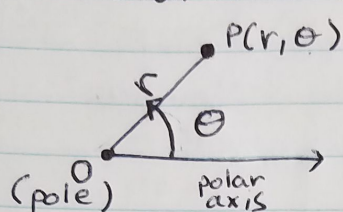 P(r, θ)
r
θ
O
(pole)
polar
axis